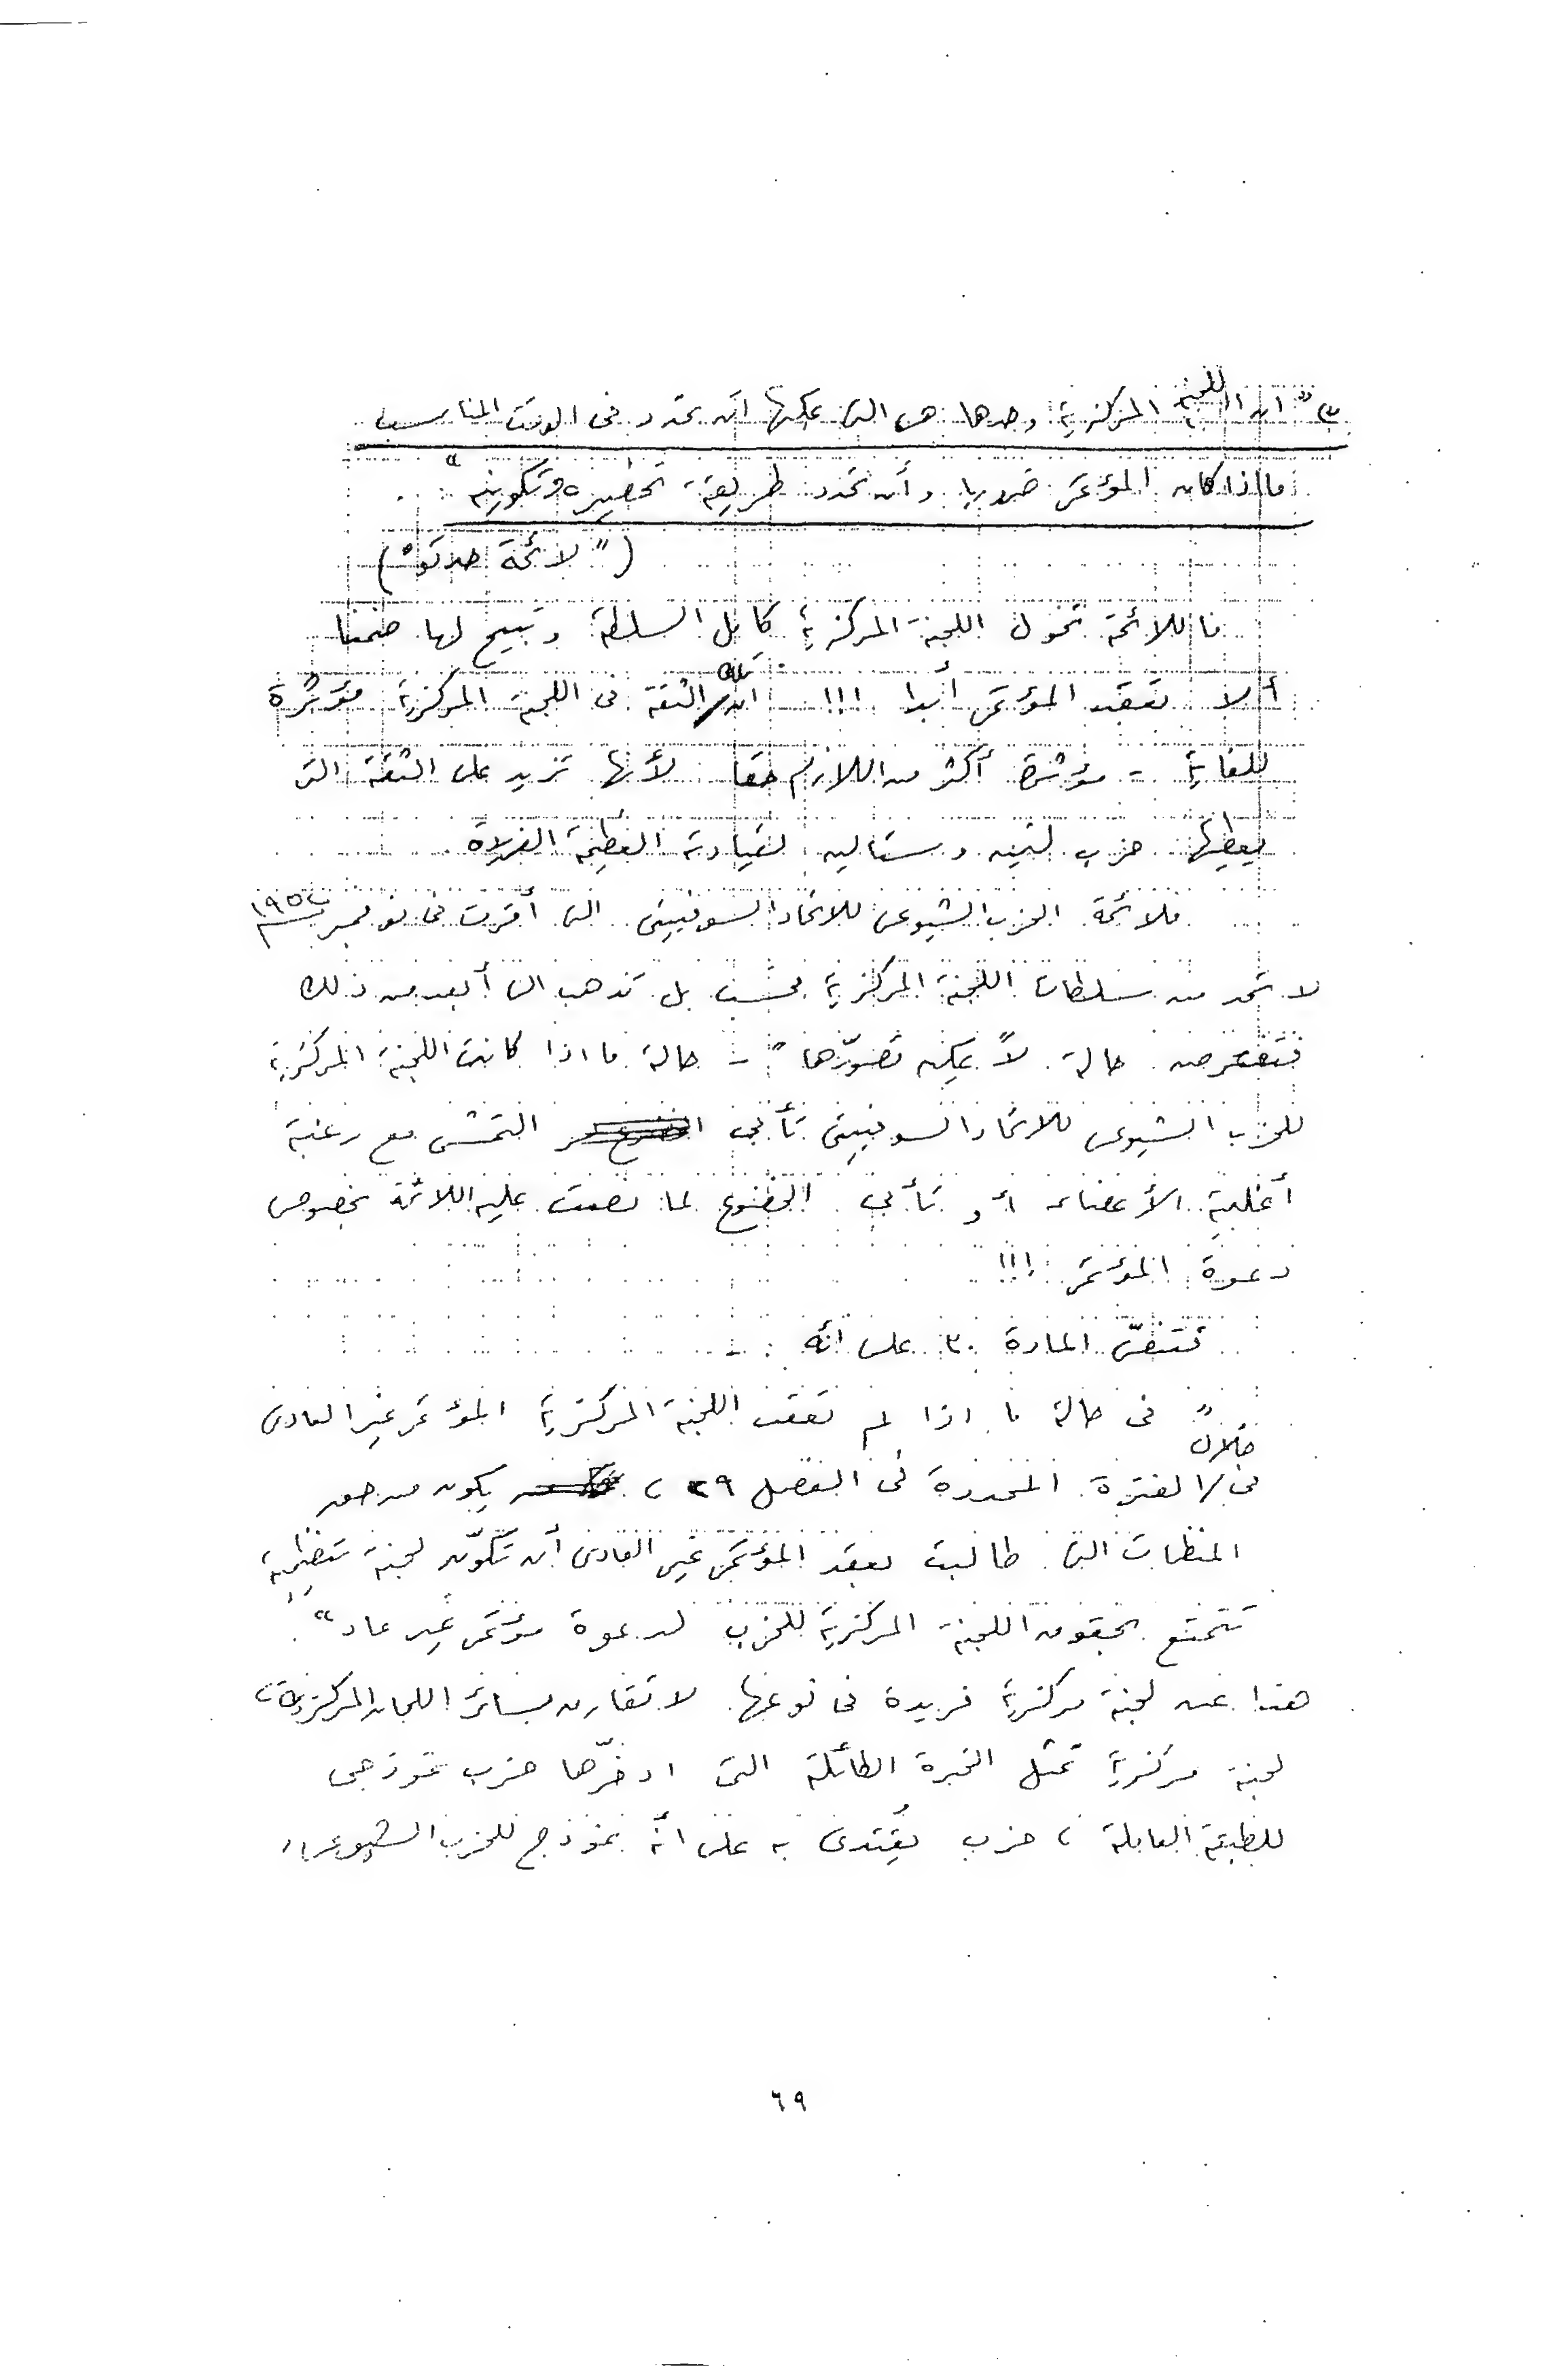 ٣ " ان اللجنة المركزية وحدها هى التى يمكنها ان تحدد فى الوقت المناسب
ما اذا كان المؤتمر ضروريا وأن تحدد طريقة تحضيره وتكوينه "
( " لائحة حدتو " )
فاللائحة تخول اللجنة المركزية كامل السلطة وتبيح لها ضمنا
ألا تعقد المؤتمر أبدا !!! ان تلك الثقة فى اللجنة المركزية مؤثرة
للغاية - مؤثرة أكثر من اللازم حقا لأنها تزيد على الثقة التى
يعطيها حزب لينين وستالين لقيادته العظيمة الفريدة
فلائحة الحزب الشيوعى للاتحاد السوفييتى التى أقرت فى نوفمبر ١٩٥٢
لا تحد من سلطات اللجنة المركزية فحسب بل تذهب الى أبعد من ذلك
فتفترض حالة " لا يمكن تصوّرها " - حالة ما اذا كانت اللجنة المركزية
للحزب الشيوعى للاتحاد السوفييتى تأبى التمشى مع رغبة
أغلبية الأعضاء أو تأبى الخضوع لما نصت عليه اللائحة بخصوص
دعوة المؤتمر !!!
فتنصّ المادة ٣٠ على أنه :
" فى حالة ما اذا لم تعقد اللجنة المركزية المؤتمر غير العادى
فى / خلال الفترة المحددة فى الفصل ٢٩ ، يكون من حق
المنظمات التى طالبت بعقد المؤتمر غير العادى أن تكوّن لجنة تنظيمية
تتمتع بحقوق اللجنة المركزية للحزب لدعوة مؤتمر غير عاد " .
هذا عن لجنة مركزية فريدة فى نوعها لا تقارن بسائر اللجان المركزية ،
لجنة مركزية تمثل الخبرة الطائلة التى ادخرّها حزب نموذجى
للطبقة العاملة ، حزب يُقتدى به على أنّه نموذج للحزب الشيوعى ،
٦٩